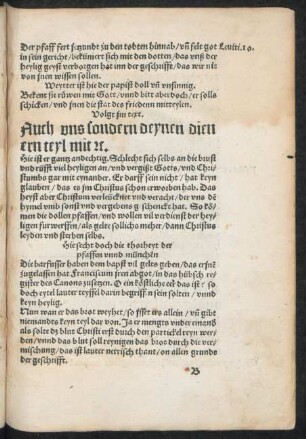 Der pfaff fert yezundt zu den todten hinnab/ vñ felt got Leuiti.10.
in sein gericht/ bekümert sich mit den dotten/ das vnß der
heylig geyst verborgen hat inn der geschrifft/ das wir nit
von jnen wissen sollen.
Weytter ist hie der papist doll vñ vnsinnig.
Bekent sie růwen mit Gott/ vnnd bitt aber doch/ er solls
schicken/ vnd jnen die stat des friedenn mitteylen.
Volgt sin text.
Auch vns sondern deynen dien
ern teyl mit ꝛc.
Hie ist er gantz andechtig. Schlecht sich selbs an die brust
vnd růfft viel heyligen an/ vnd vergißt Gotts/ vnd Chri
stumbs gar mit eynander. Er darff sein nicht/ hat keyn
glauben/ das es jm Christus schon erworben hab. Das
heyst aber Christum verleücknet vnd veracht/ der vns dē
hymel vmb sonst vnd vergebens geschenckt hat. So kō-
men die dollen pfaffen/ vnd wollen vil verdienst der hey-
ligen furwerffen/ als gelte sollichs meher/ dann Christus
leyden vnd sterben selbs.
Hie secht doch die thorheyt der
pfaffen vnnd münchen
Die barfusser haben dem bapst vil geltes geben/ das er jnē
zugelassen hat Franciscum jren abgot/ in das hübsch re-
gister des Canons zusetzen. O ein köstliche eer das ist: so
doch eytel lauter teyffel darin begriffen sein solten/ vnnd
keyn heylig.
Nun wan er das brot weyhet/ so frist ers allein/ vñ gibt
niemandes keyn teyl dar von. Ja er mengts vnder einandē
als solte das blut Christi erst durch den partickel reyn wer-
den/ vnnd das blut soll reynigen das brot durch die ver-
mischung/ das ist lauter netrisch thant/ on allen grundt
der geschrifft.
B